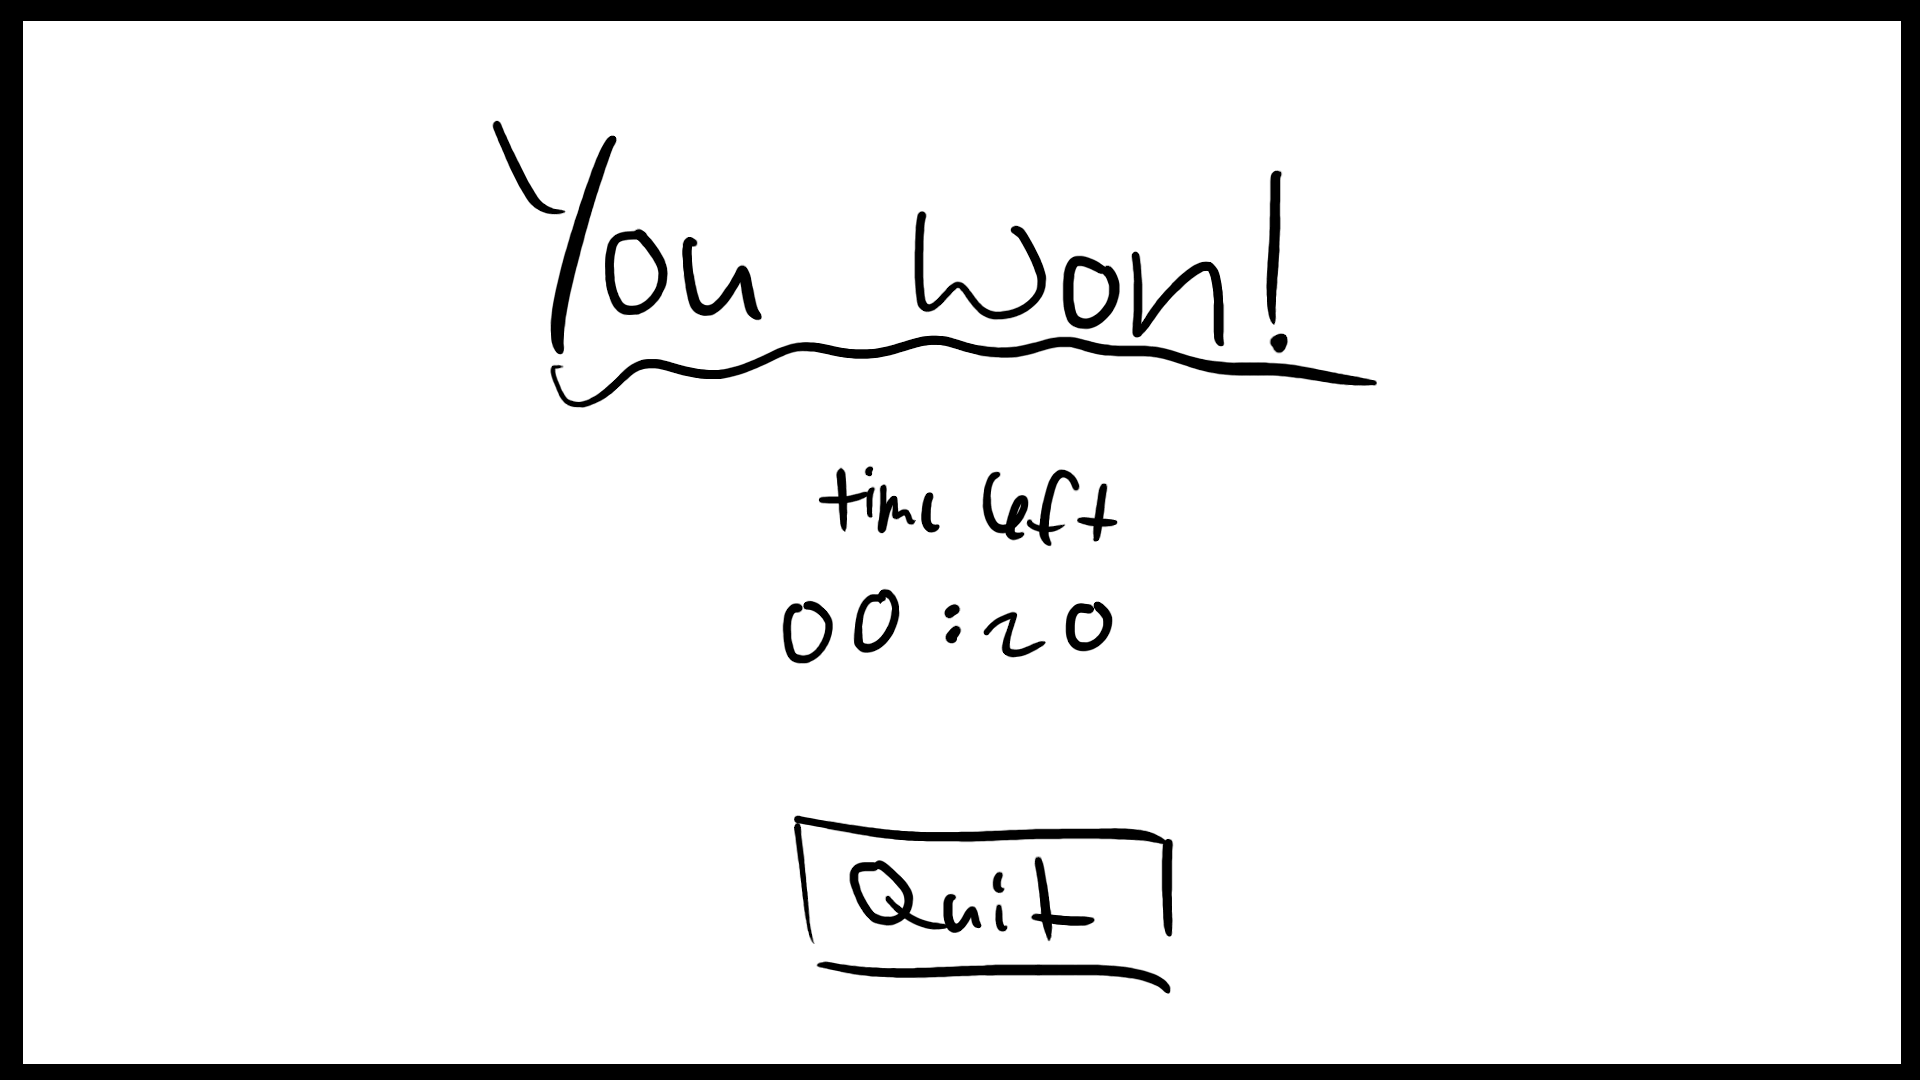 You Won!
time left
00:20
Quit